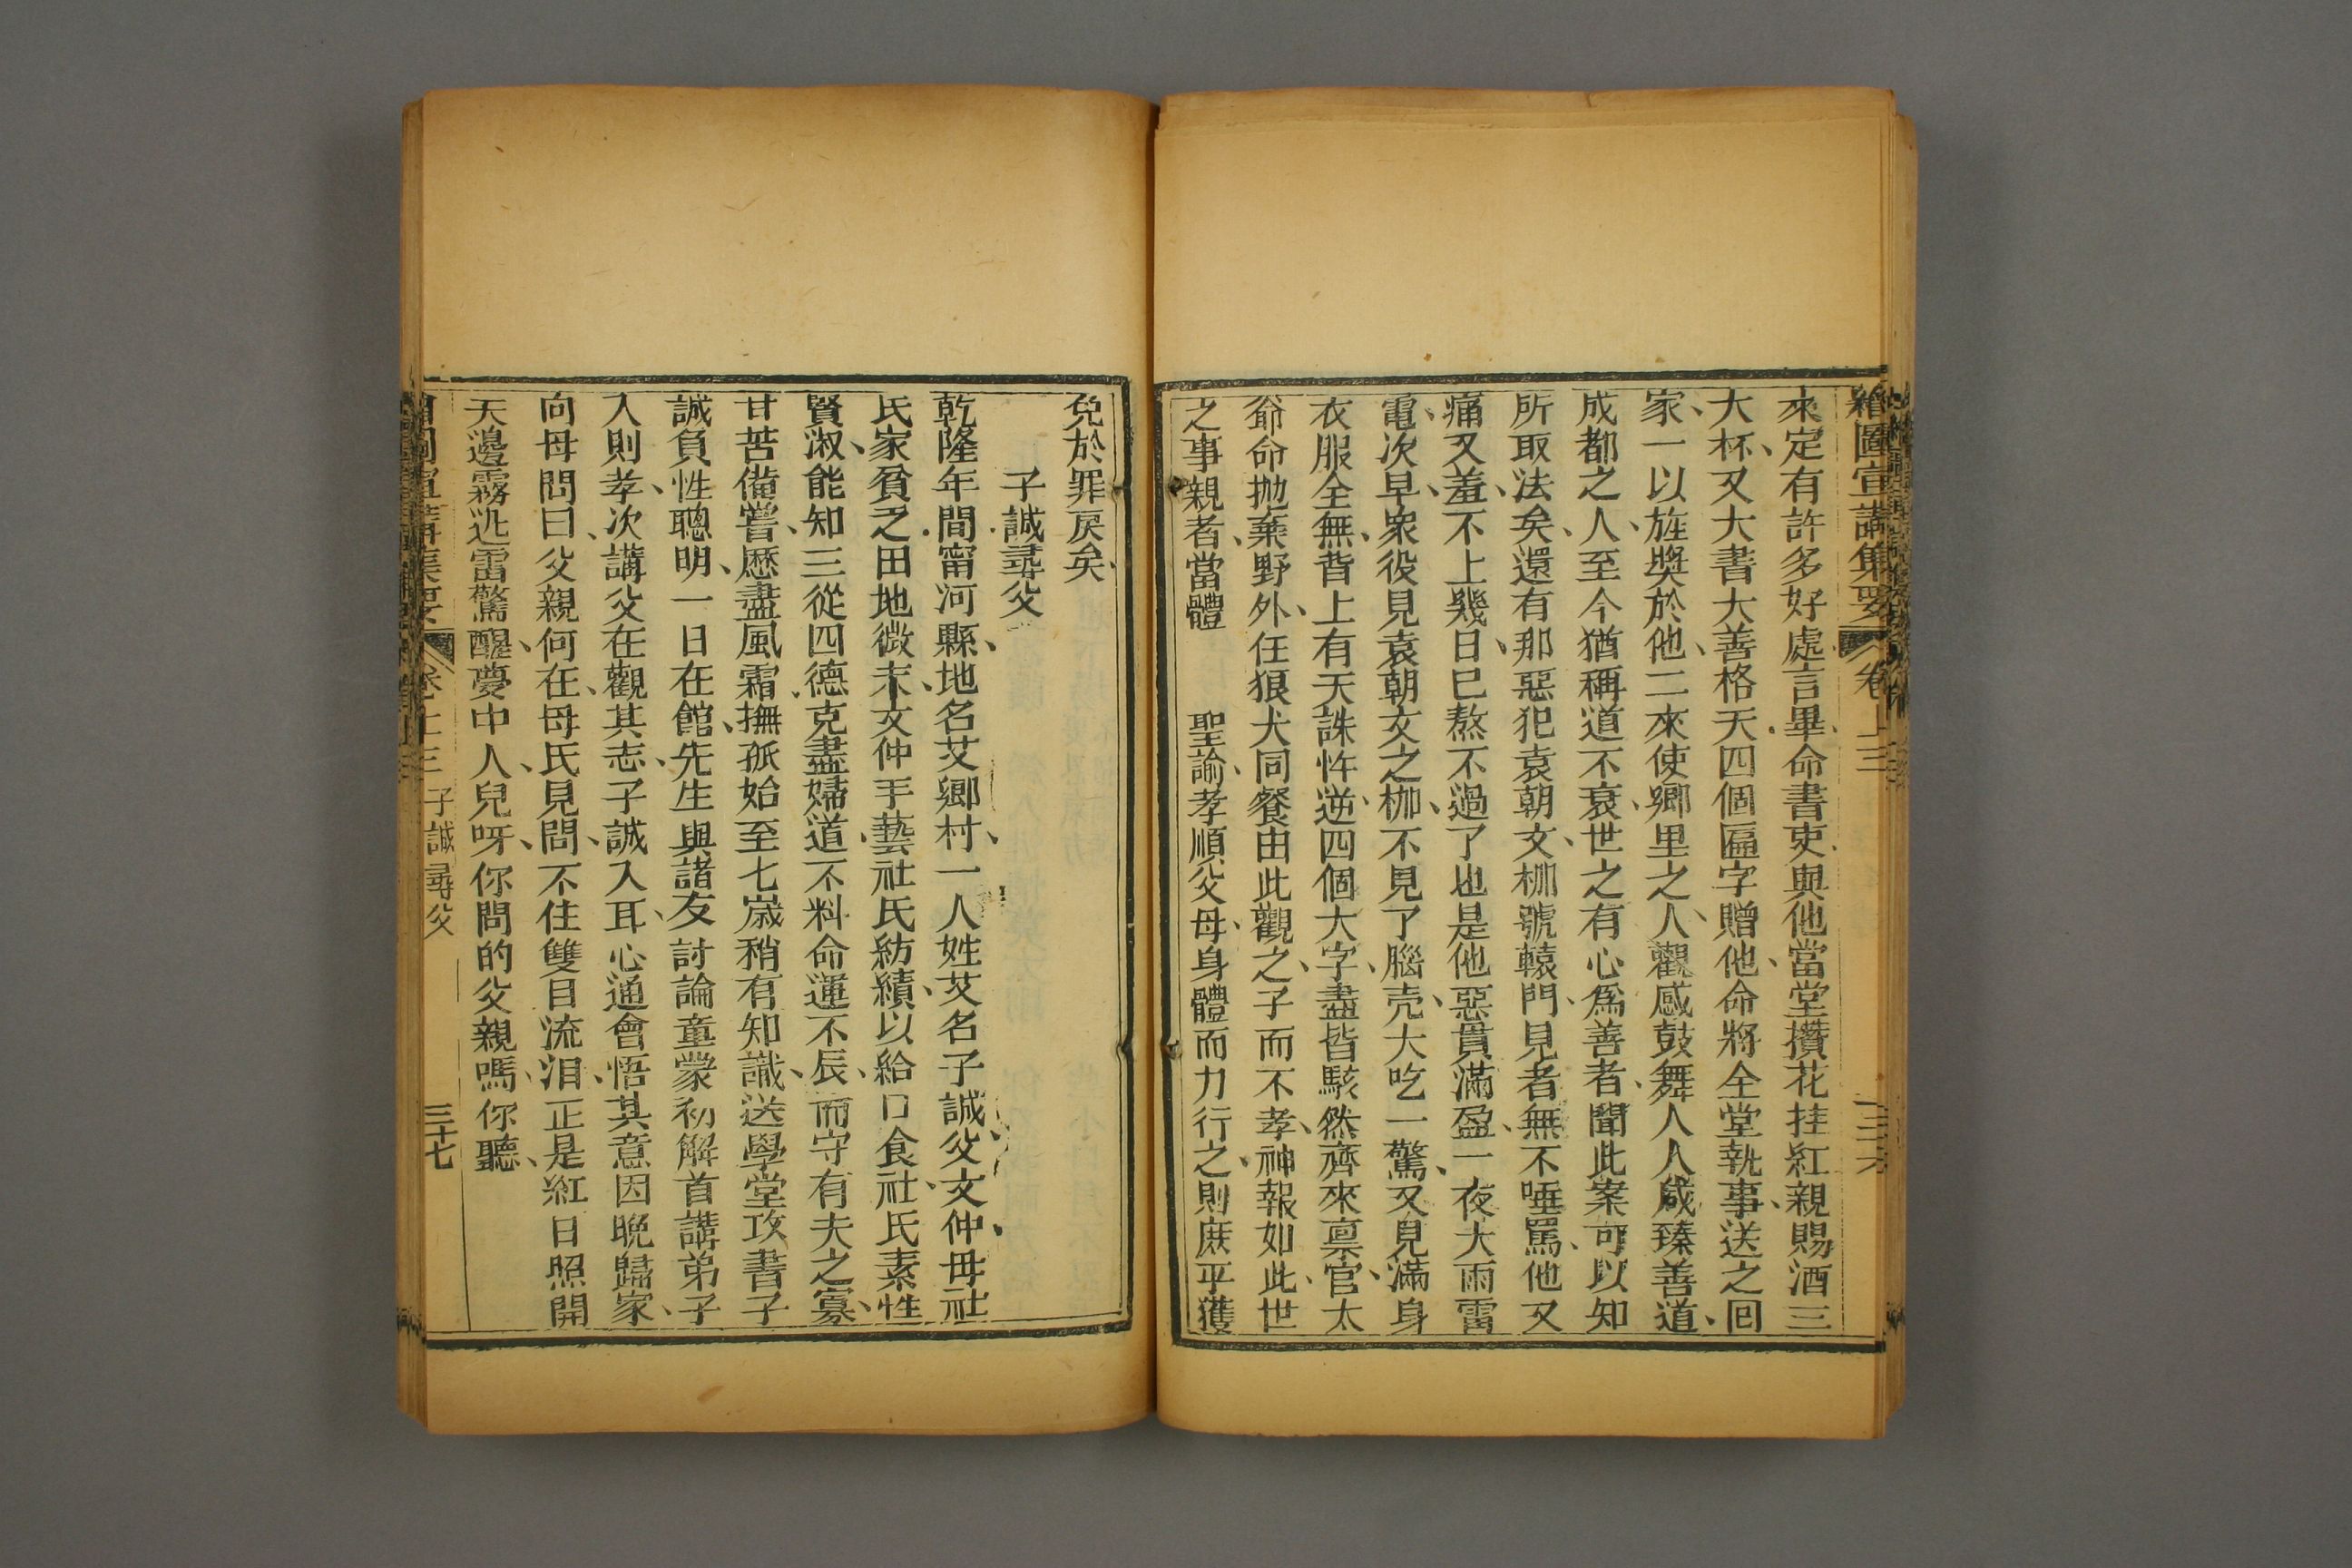 繪圖宣講集要 卷上三
來定有許多好處言畢命書吏與他當堂攢花挂紅親賜酒三
大杯又大書大善格天四個匾字贈他命將全堂執事送之回
家一以旌獎於他二來使鄉里之人觀感鼓舞人人咸臻善道
成都之人至今猶稱道不衰世之有心爲善者聞此案可以知
所取法矣還有那惡犯袁朝文枷號轅門見者無不唾罵他又
痛又羞不上幾日已熬不過了也是他惡貫滿盈一夜大雨雷
電次早衆役見袁朝文之枷不見了腦壳大吃一驚又見滿身
衣服全無背上有天誅忤逆四個大字盡皆駭然齊來禀官太
爺命抛棄野外任狼犬同餐由此觀之子而不孝神報如此世
之事親者當體 聖諭孝順父母身體而力行之則庶乎獲
免於罪戾矣
子誠尋父
乾隆年間甯河縣地名艾鄉村一人姓艾名子誠父文仲母社
氏家貧乏田地微末文仲手藝社氏紡績以給口食社氏素性
賢淑能知三從四德克盡婦道不料命運不辰而守有夫之寡
甘苦備嘗歷盡風霜撫孤始至七嵗稍有知識送學堂攻書子
誠負性聰明一日在館先生與諸友討論童蒙初解首講弟子
入則孝次講父在觀其志子誠入耳心通會悟其意因晚歸家
向母問曰父親何在母氏見問不住雙目流泪正是紅日照開
天邊霧迅雷驚醒夢中人兒呀你問的父親嗎你聽
子誠尋父
三十七